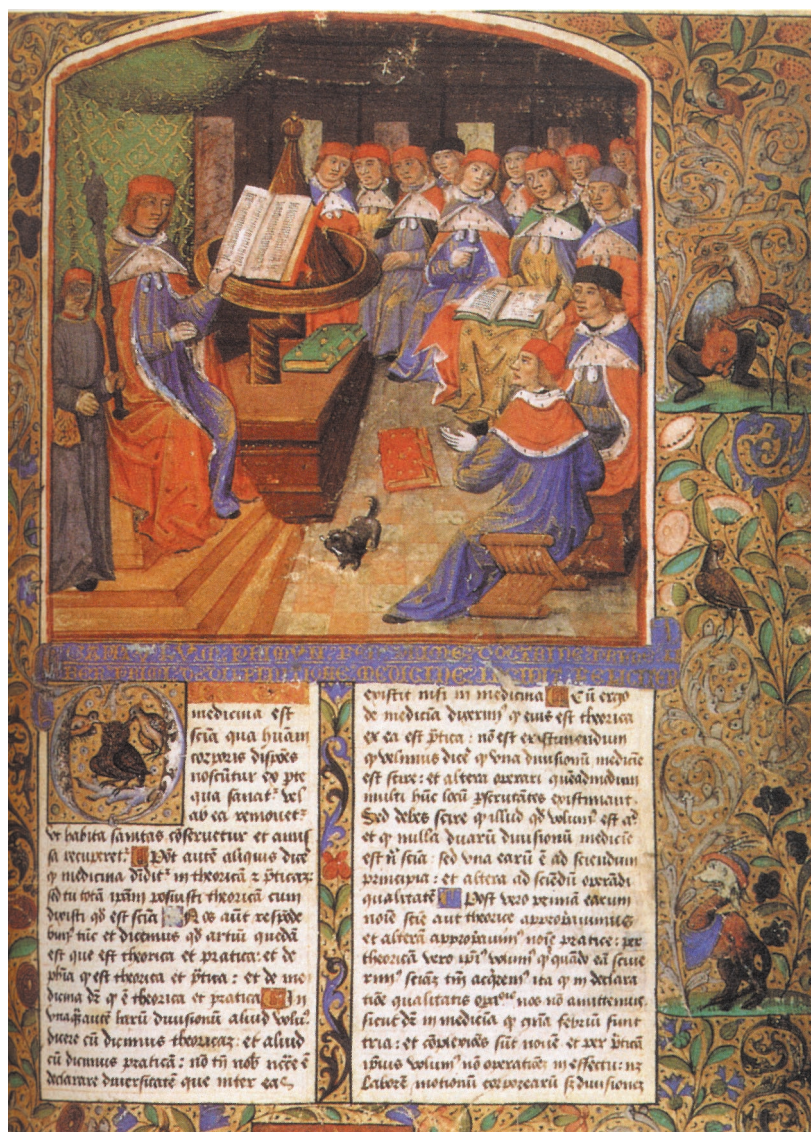 PRIMVM
MEDICINE
medicina est
scīa qua huāni
corporis dispōes
noscūtur ex pte
qua sanatᷣ vel
ab ea remouetᷣ
vt habita sanitas cōseruetur et amis
sa recuperetᷣ Pōt autē aliquis dicē
ꝙ medicina diuiditᷣ in theoricā ⁊ p̄ticaꝫ
sed tu totā ipām posuisti theoricā cum
dixisti qd̄ est scīa Nos aūt respōde
bimꝰ tūc et dicemus qd̄ artiū quedā
est que est theorica et pratica: et de
ph̄ia ꝙ est theorica et p̄tica: et de me
dicina d̄r ꝙ ē theorica et pratica In
vnaq̄autē harū diuisionū aliud volūꝰ
dicere cū dicimus theoricaꝫ: et aliud
cū dicimus praticā: nō tn̄ nob̄ necē ē
declarare diuersitatē que inter eas
existit nisi in medicina Cū ergo
de medicīa dixerimꝰ ꝙ eius est theorica
et ea est p̄tica: nō est existimandum
ꝙ velimus dicē ꝙ vna diuisionū medicīe
est scire: et altera operari queadmodum
multi hūc locū p̄scrutātes existimant.
Sed debes scire ꝙ illud qd̄ volumꝰ est
et ꝙ nulla duarū diuisionū medicīe
est nͥ scīa: sed vna earū ē ad sciendum
principia: et altera ad sciēdū operādi
qualitatē Post vero primā earum
noīe sciē aut theorice appropauimus
et alterā appropauimꝰ noīe pratice: per
theoricā vero ip̄iꝰ volumꝰ ꝙ quādo eā sciue
rimꝰ sciāꝫ tm̄ acq̄remꝰ ita ꝙ in declara
tiōe qualitatis nos nō amittemus
sicut d̄r in medicīa ꝙ febriū sunt
tria: et cōplexiōes sūt nouē et per p̄ticā
ip̄ius volumꝰ nō operatiōeꝫ in effectu: nꝫ
Laborē motionū corporearū sꝫ diuisioneꝫ